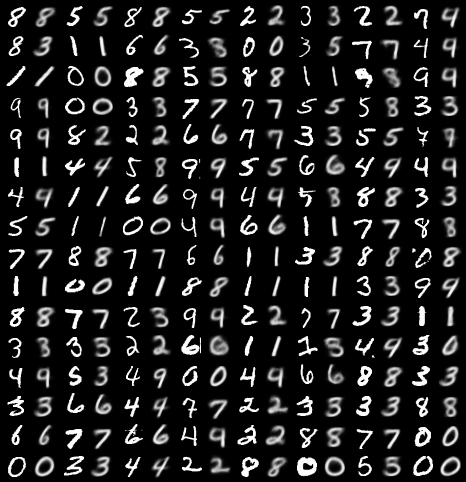 8 8 5 5 8 8 5 5 2 2 3 3 2 2 7 9
8 3 1 1 6 6 3 8 0 0 3 5 7 7 4 9
1 1 0 0 8 8 5 5 8 8 1 1 8 9 9
9 9 0 0 3 3 7 7 7 7 5 5 5 8 3 3
9 9 8 2 2 2 6 6 7 7 3 3 5 5 7 9
1 1 4 4 5 8 9 9 5 5 6 6 4 9 4 9
4 9 1 1 6 6 9 9 4 9 5 8 8 8 3 3
5 5 1 1 0 0 4 9 6 6 1 1 7 7 8 8
7 7 8 8 7 7 6 6 1 1 3 3 8 8 0 8
1 1 0 0 1 1 8 8 1 1 1 1 3 3 9 9
8 8 7 7 2 3 9 9 2 2 7 7 3 3 1 1
3 3 3 3 2 2 6 6 1 1 2 3 4 9 3 0
4 9 5 3 4 9 0 0 4 9 6 6 8 8 3 3
3 3 6 6 4 4 7 7 2 2 3 3 3 3 8 8
6 6 7 7 6 6 4 9 2 2 8 8 7 7 0 0
0 0 3 3 4 4 2 2 8 8 0 0 5 5 0 0